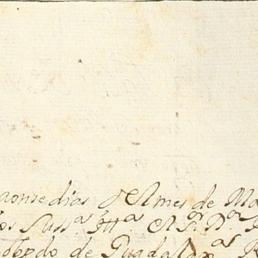 onse dias del mes de Ma
los Sus.s Ill.a El S.r D.n
Obpdo de Guadalax.a